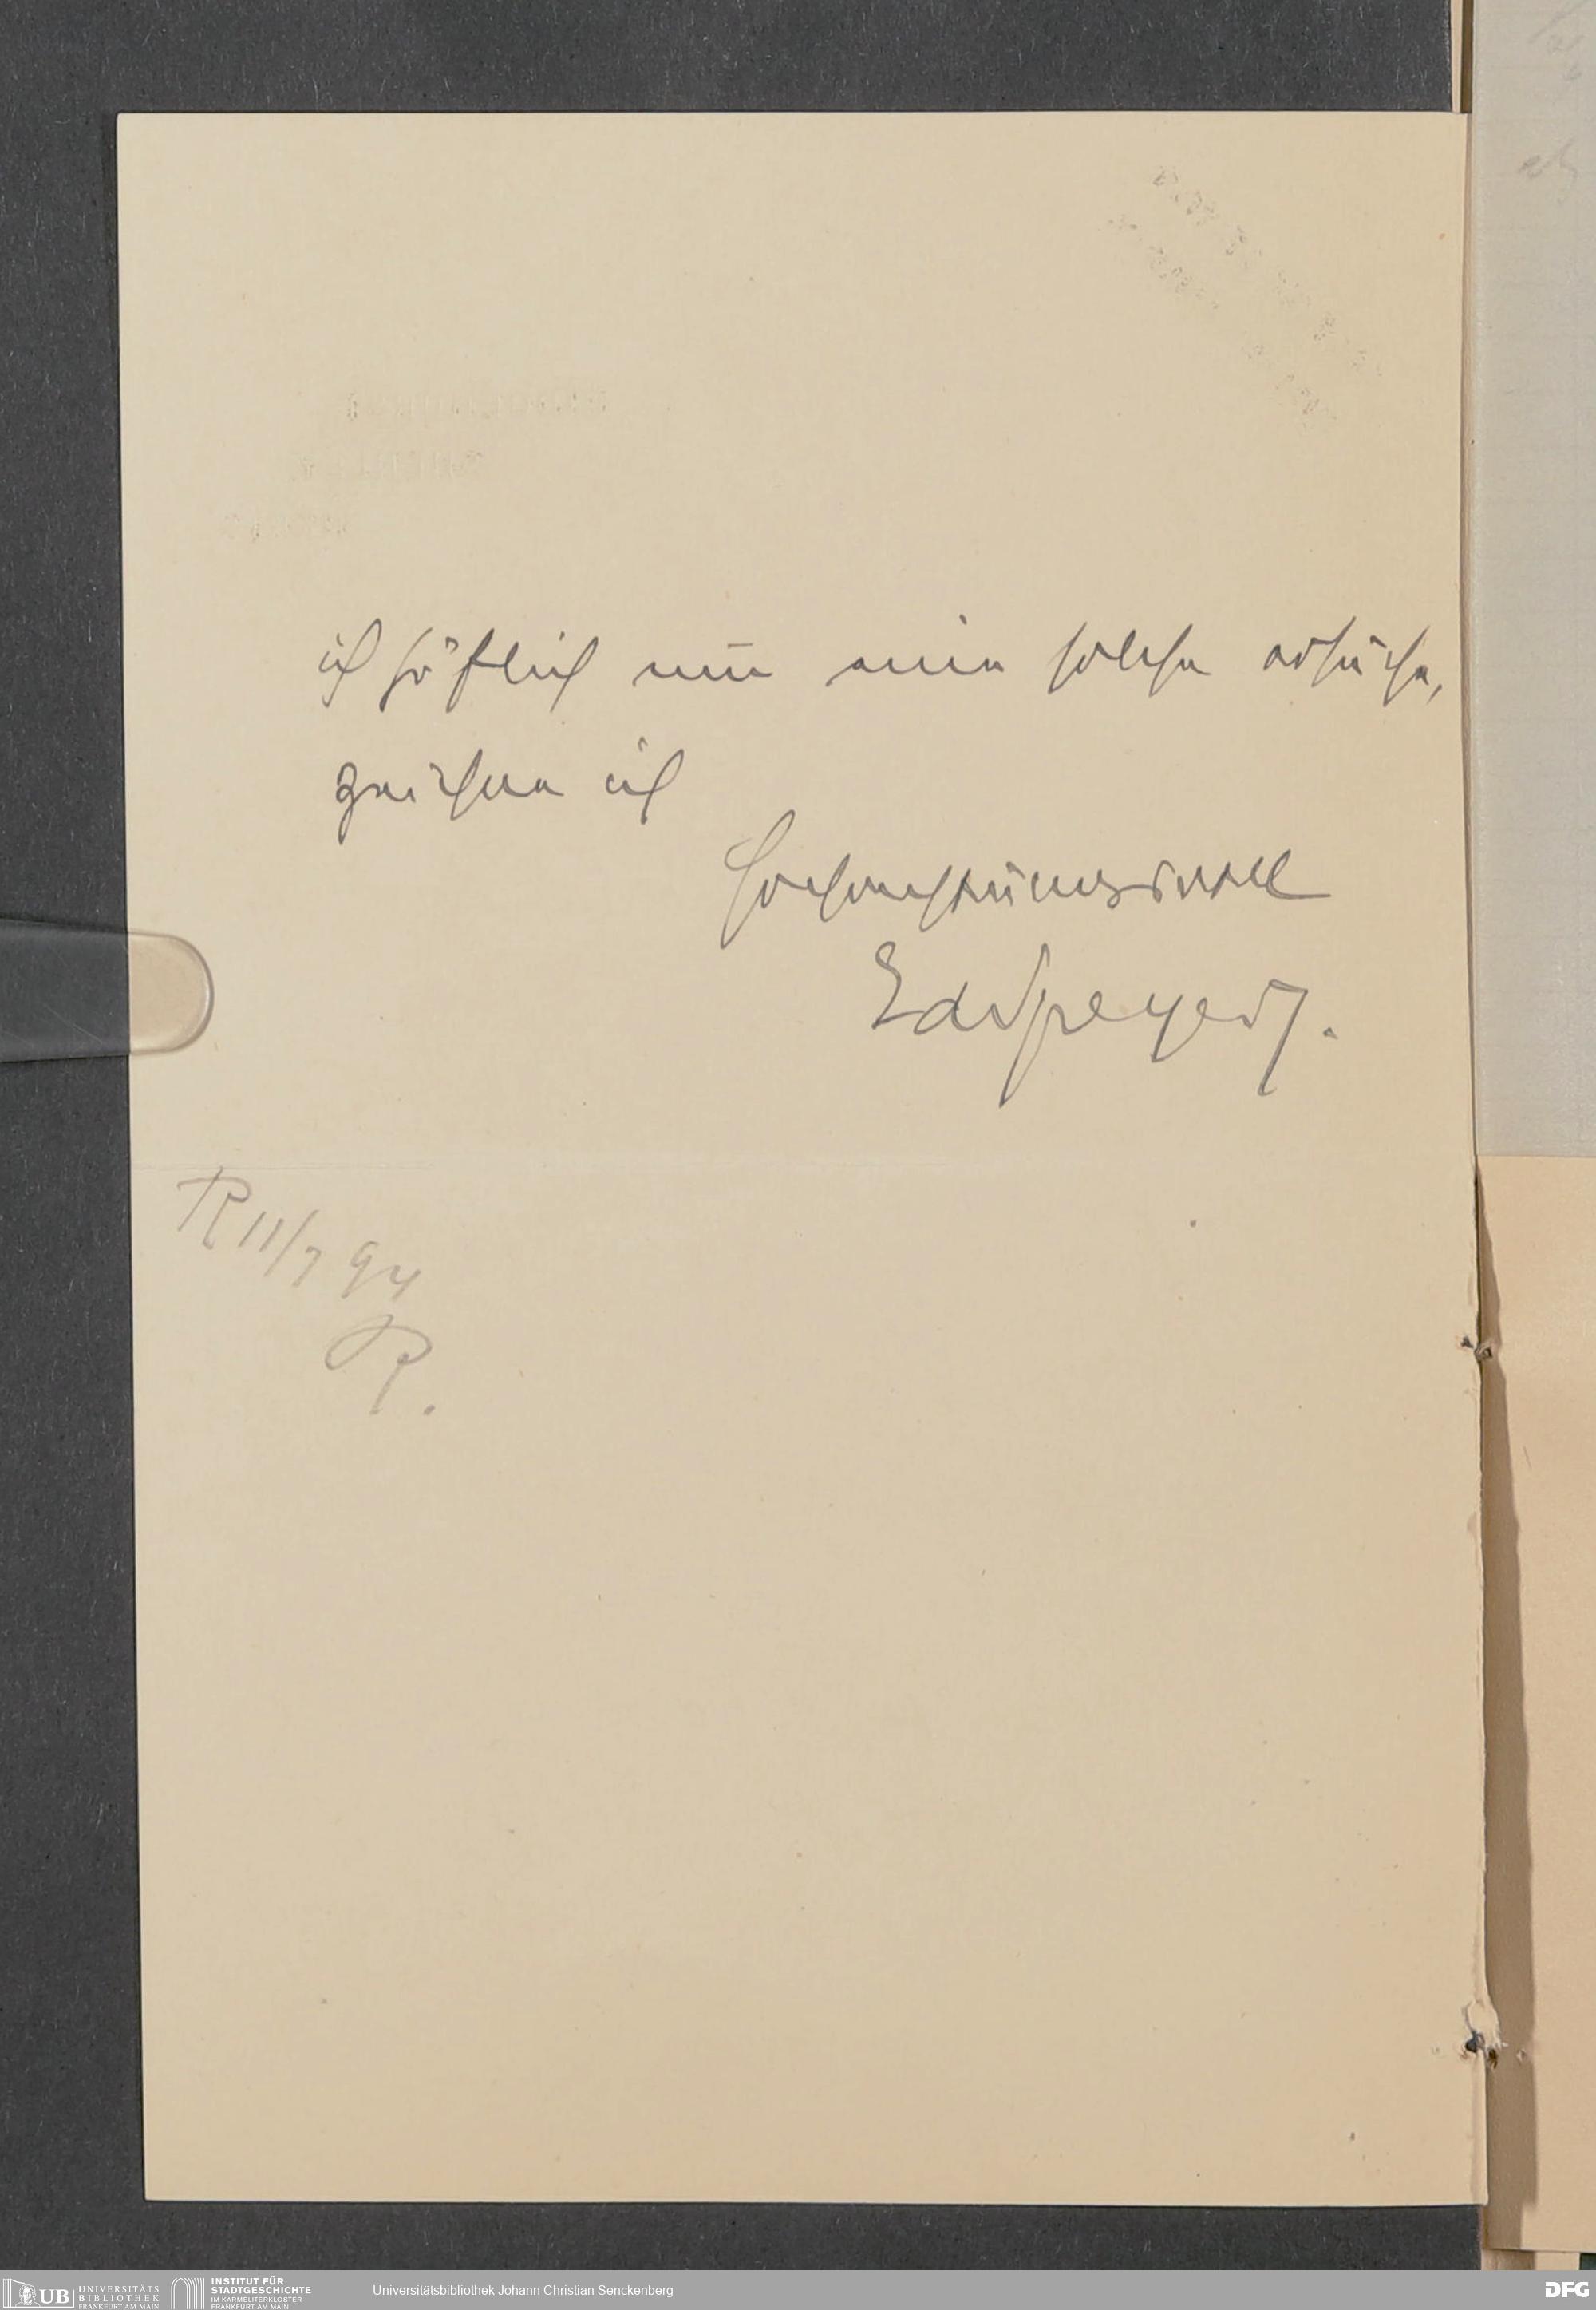 ich höflich um eine solche ersuche,
zeichne ich
Hochachtungsvoll
EdSpeyer.
R 11/7 94
R.
UB UNIVERSITÄTS
BIBLIOTHEK
FRANKFURT AM MAIN
INSTITUT FÜR
STADTGESCHICHTE
IM KARMELITERKLOSTER
FRANKFURT AM MAIN
Universitätsbibliothek Johann Christian Senckenberg
DFG